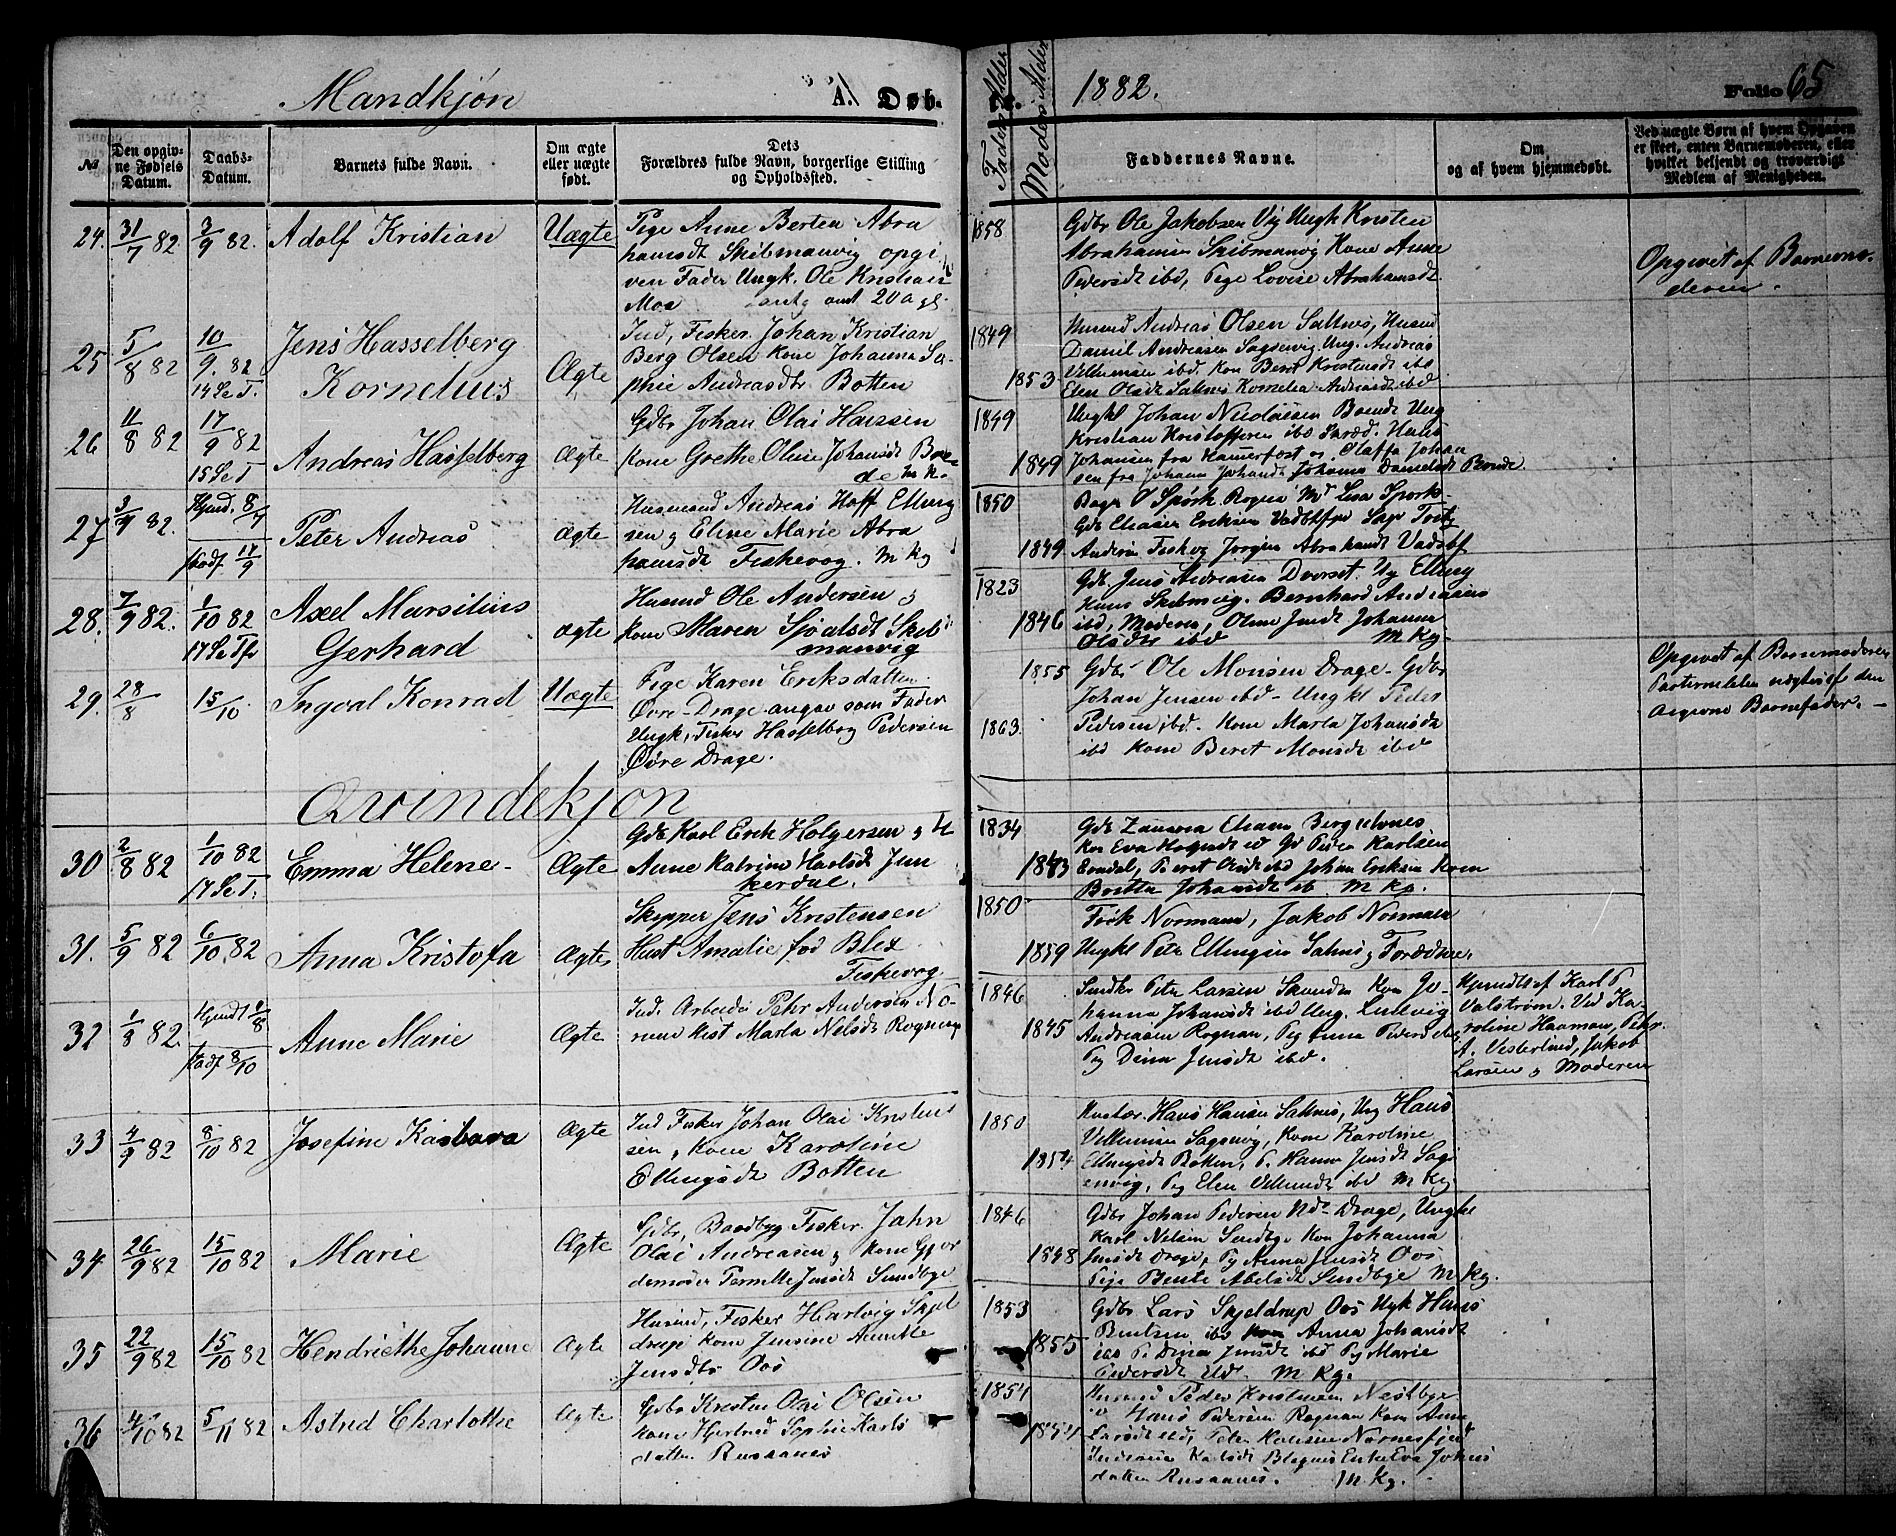 Mandkjøn
A. Døb-
te.
1882.
Folio 65
Faders Alder
Moders Alder
No
Den opgiv-
ne Fødsels
Datum.
Daabs-
Datum.
Barnets fulde Navn.
Om ægte
eller uægte
født.
Dets
Forældres fulde Navn, borgerlige Stilling
og Opholdssted.
Faddernes Navne.
Om
og af hvem hjemmedøbt.
Ved uægte Børn af hvem Opgaven
er skeet, enten Barnemoderen, eller
hvilket betjendt og troværdigt
Medlem af Menigheden.
24. 31/7 82 3/9 82. Adolf Kristian Uægte
Pige Anne Berten Abra
hamsdt Skibmanvig opgi
ven Fader Ungk. Ole Kristian
Moe
1858
Gdbr Ole Jakobsen Vig Ungk Kristen
Abrahamsen Skibmanvig Kone Anne
Pedersdt ibd, Pige Lovise Abrahamsdt
Opgivet af Barnemo-
deren.
25 5/8 82 10/9. 82 14 S e T. Jens Hasselberg
Kornelius
Ægte
Ind, Fisker Johan Kristian
Berg Olsen Kone Johanna So-
phie Andreasdtr Botten
1849
1853
Husmd Andreas Olsen Saltnes, Husmd
Daniel Andreasen Sagsevig Ung. Andreas
Vilhumsen ibd. Kone Beret Kristensdt ibd
Elen Olsdt Saltnes Kornelia Andreasdt ibd
26 11/8 82 17/9 82 15 S e T Andreas Hasselberg Ægte
Gdbr Johan Olai Hanssen
Kone Grethe Oline Johansdt Bon-
de M K.
1849
1849
Ungkl Johan Nicolaisen Bonde Ung
Kristian Kristoffersen ibd
Johansen fra Hamerfost og Olaffa Johan
sen fra Johanna Danielsdt Bonde
27 3/9 82. Hjmd. 8/9
stadf 17/9
Peter Andreas Ægte
Husmand Andreas Hoff Elling
sen og Eline Marie Abra
hamsdt Fiskevog. M Kg
1850
1849
Gdb Eliaser Eriksen
Andersen Fiskvg Jorgine Abrahamdt
28. 7/9 82. 1/10 82 17 S e Tr Axel Marsilius
Gerhard
Ægte
Husmd Ole Andersen og
Kone Maren Sjoalsdt Skib
manvig
1823
1846
Gdb. Jens Andreasen Dverset. Ug Elling
Hans Skibmvig. Bernhard Andreasen
ibd, Moderen, Oline Jensdt Johanna
Olsdtr ibd M Kg.
29. 28/8 15/10 Ingval Konrad Uægte
Pige Karen Eriksdatter
Øvre-Drage angav som Fader
Ungk, Fisker Hasselberg Pedersen
Øvre Drage.
1855
1863.
Gdbr Ole Monsen Drage. Gdbr
Johan Jensen ibd- Ungkl Peder
Pedersen ibd. Kone Marta Johansdt
ibd Kone Beret Monsdt ibd
Opgivet af Barnemoderen
Paterniteten nægtes af den
Opgivne Barnefader.-
Qvindekjøn
30 2/8 82 1/10 82 17 S e T. Emma Helene- Ægte
Gdb Karl Erik Holgersen og H
Anne Katrine Karlsdt Jun
kerdal.
1834
1843
Gdb
Kon Eva
Evendal, Beret Olsdt ibd Johan Eriksen Kone
Britta Johansdt ib. M Kg.
31. 5/9 82 6/10 82 Anna Kristofa Ægte
Skipper Jens Kristensen
Hust Amalie fød Blix
Fiskevog
1850
1859
Frøk Normann, Jakob Normann
Ungkl Peter Ellingsen Saltnes og Forældrene.
32 1/8 82. Hjmdt 1/8
stadf 8/10
Anne Marie Ægte
Ind. Arbeider Pehr Andersen No-
rum Hust Marta Nilsdt Rognan
1846
1845
Smdkr Peter Larsen Skanden Kon Jo-
hanna Johansdt ibd Ung. Ludvig
Andreasen Rognan, Pg Anna Pedersdt ibd
Pg Dina Jensdt ibd.
Hjemdøbt af Karl P.
Valstrøm. Ved Ka-
roline Haaman, Pehr
A. Vesterlund, Jakob
Larsen og Moderen
33 4/9 82 8/10 82 Josefine Kasbara Ægte
Ind Fisker Johan Olai Kristen
sen, Kone Karoline
Ellingsdt Botten
1850
1854
Kustar. Hans Hansen Saltnes, Ung Hans
Villumsen Sagsevig, Kone Karoline
Ellingsdt Botten, P. Hanna Jensdt Sags
envig, Pig Elen Villumdt ibd M Kg.
34 26/9 82 15/10 82 Marie Ægte
Gdbr, Baadbyg Fisker. Jahn
Olai Andreasen og Kone Gjor
demoder Pernille Jensdt Sundbye
1846
1848
Gdbr Johan Pedersen Nd Drage, Ungkl
Karl Nilsen Sundbye Kon Johanna
Jensdt Drage, Pg Anna Jensdt Oos
Pige Bente Abelsdt Sundbye M Kg.
35 22/9 82 15/10 82 Hendriethe Johanne Ægte
Husmd, Fisker Hartvig Skjel
drup Kone Jensine Annette
Jensdtr Oos
1853
1855
Gdbr Lars Skjeldrup Oos Ungk Hans
Bentsen ibd Kon Anna Johansdt
ibd P. Dina Jensdt ibd Pg Marie
Pedersdt ibd. M Kg.
36 4/10 82 5/11 82 Astrid Charlotte Ægte
Gdbr Kristen Olai Olsen
Kone Hjertrud Sophie Karls
datter Rusaanes
1854
1854
Husmd Peder Kristensen Nestbye
Hans Pedersen Rognan Kone Anne
Larsdt ibd, Peter Karlsen
Karlsdt
datter Rusaanes. M Kg.